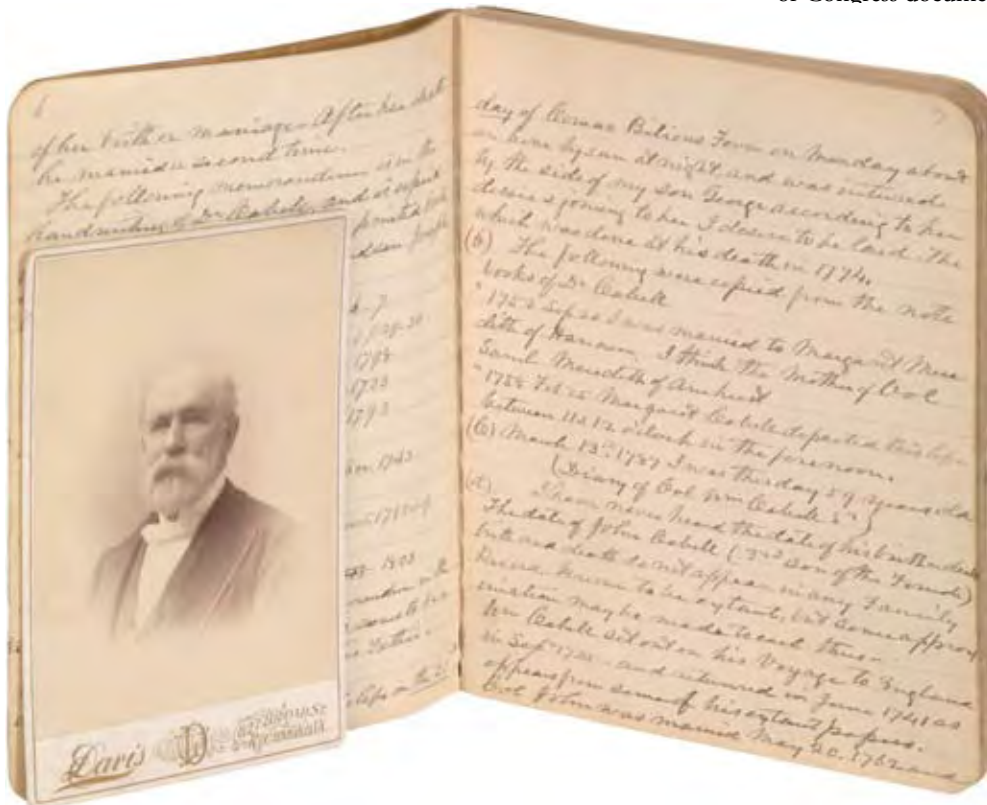 or Congress docume
6
of her birth or marriage. After her death
he married a second time.
The following memorandum is in the
handwriting of Dr Cabell, and
6-7
1798
1793
1743
1803
7
day of Bilious Fever on Monday about
an hour by sun at night and was interred
by the side of my son George according to her
desire & joining to her I desire to be laid. The
which was done at his death in 1774.
(b) The following were copied from the note
books of Dr Cabell
I was married to Margaret Mere
dith of Hanover. I think the Mother of Col
Saml Meredith of Amherst
Feb Margaret Cabell departed this life
between 11 & 12 o'clock in the forenoon.
(c) March 13th 1789 I was this day 59 years old
(Diary of Col Wm Cabell Sr)
(d) I have never heard the date of his birth or death
The date of John Cabell (3rd son of the Founder)
birth and death do not appear in any Family
Record known to be extant, but some approx
imation may be made to each thus.
Wm Cabell set out on his Voyage to England
in Sept and returned in June 1741 as
appears from some of his extant papers.
Col John was married May 20, 1762 and
Davis
BROAD ST
RICHMOND, VA